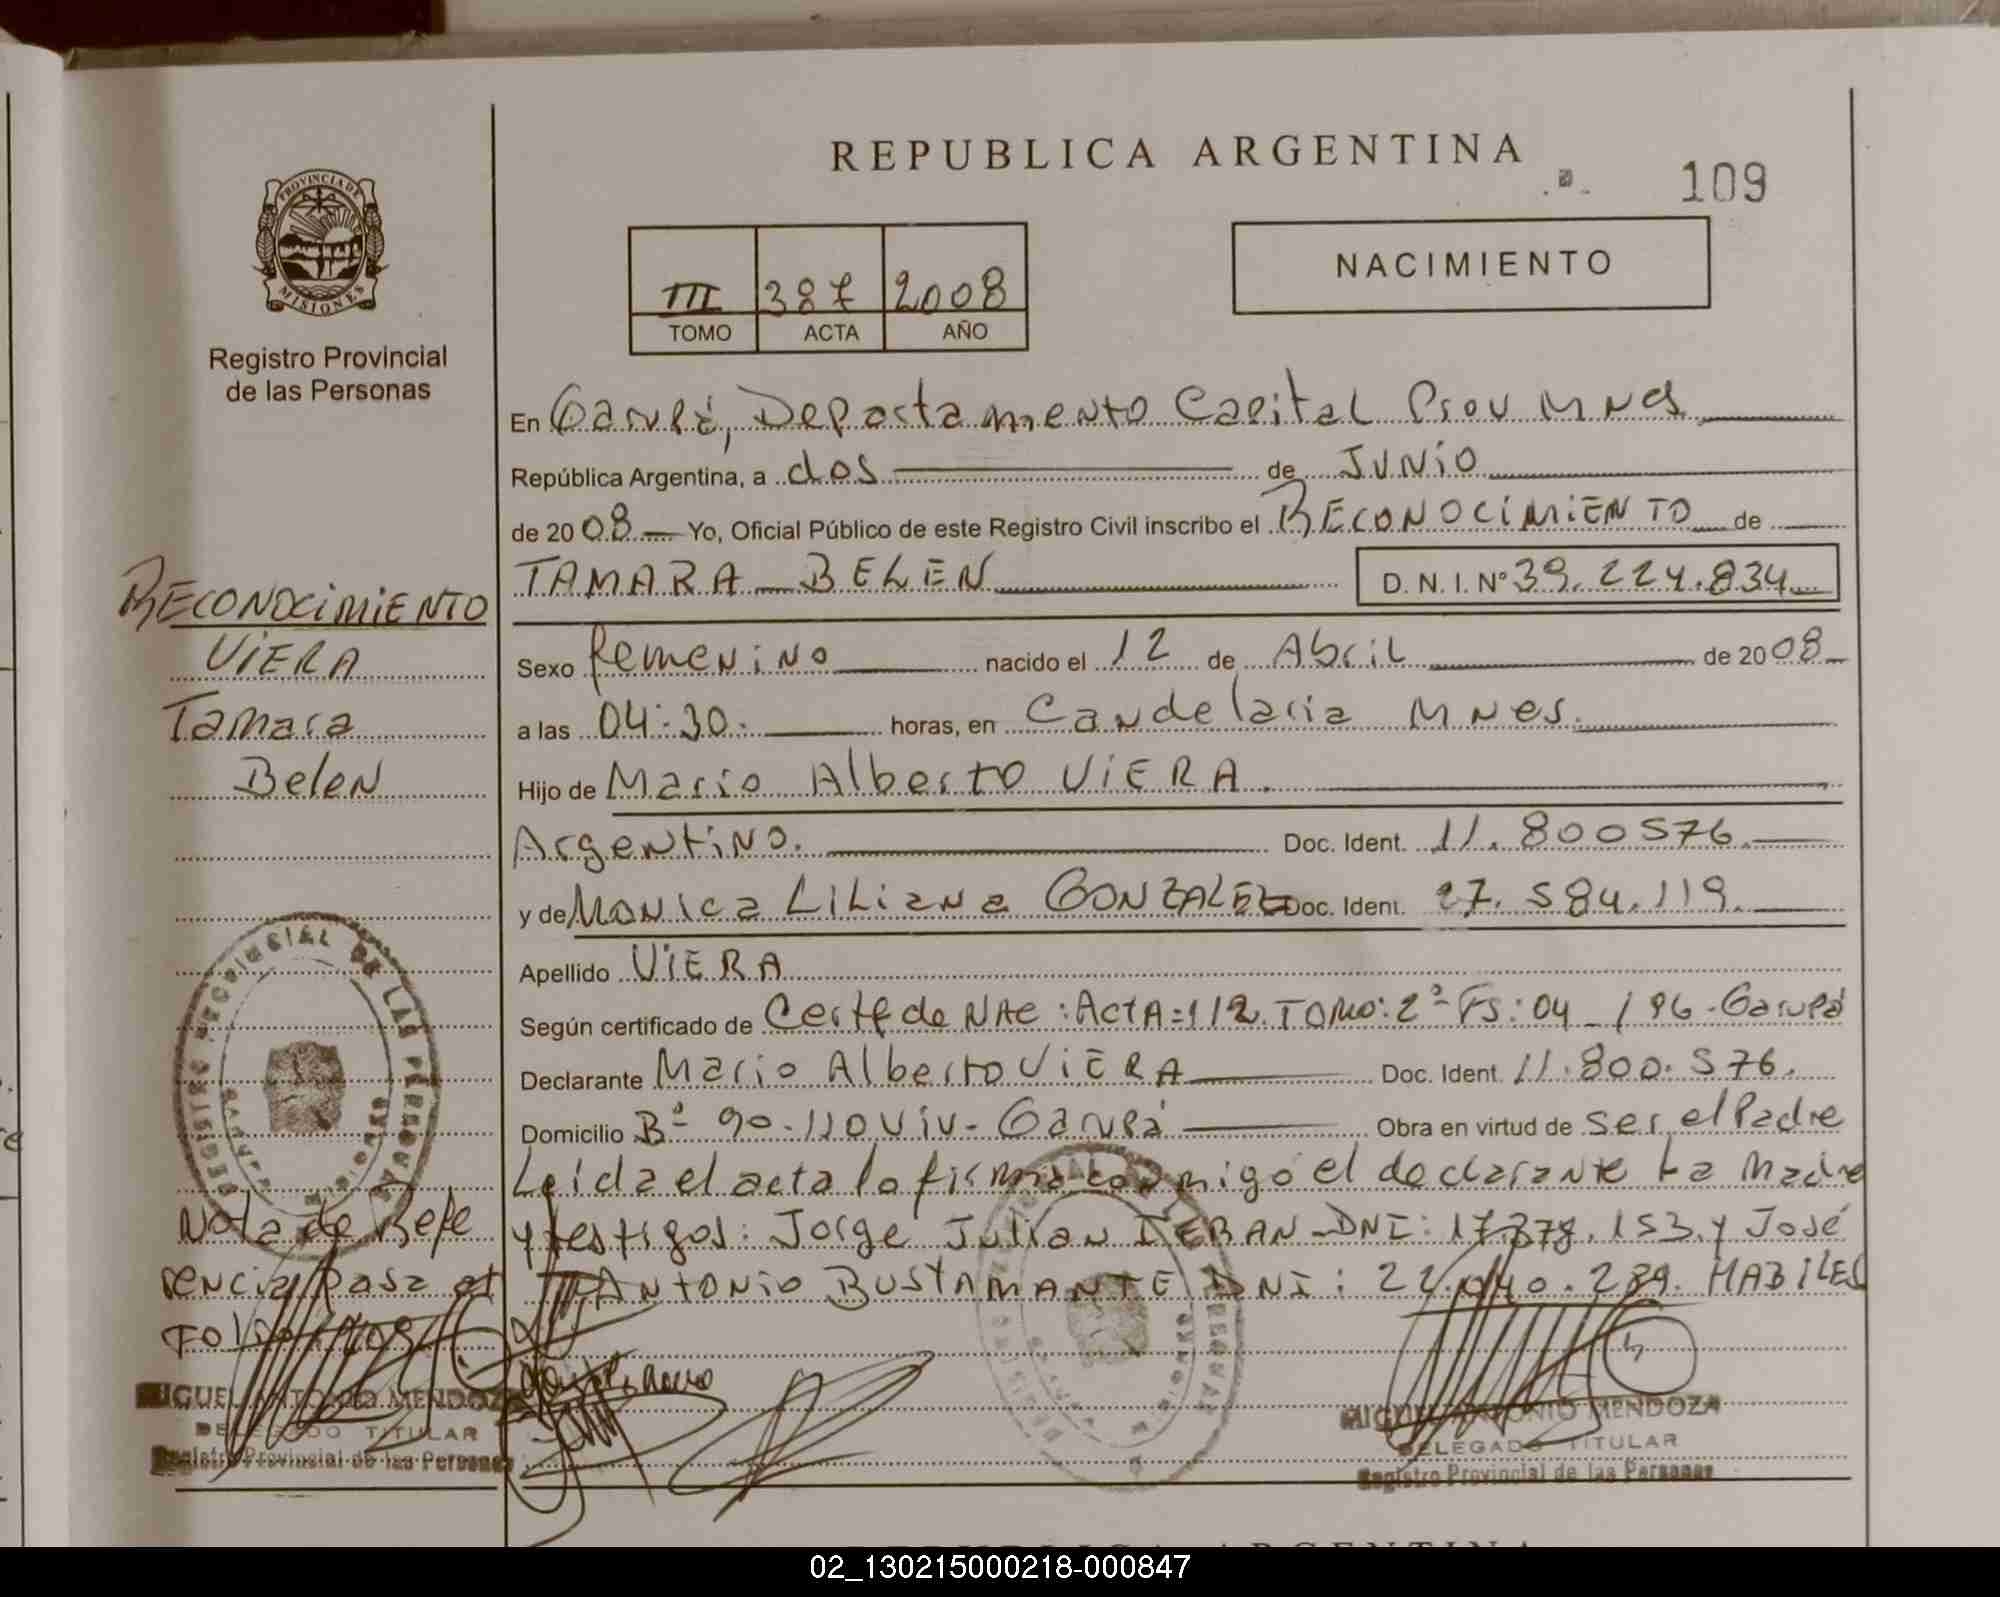 REPUBLICA ARGENTINA
109
PROVINCIA DE
MISIONES
Registro Provincial
de las Personas
III 387 2008
TOMO ACTA AÑO
NACIMIENTO
En Garupá, Departamento Capital Prov Mnes
República Argentina, a dos de JUNIO
de 2008 Yo, Oficial Público de este Registro Civil inscribo el RECONOCIMIENTO de
TAMARA BELEN D. N. I. Nº 39.224.834
RECONOCIMIENTO
VIERA
Tamara
Belen
Sexo Femenino nacido el 12 de Abril de 2008
a las 04:30. horas, en Candelaria Mnes.
Hijo de Mario Alberto VIERA.
Argentino. Doc. Ident. 11.800576.
y de Monica Liliana GONZALEZ Doc. Ident. 27.584.119.
Apellido VIERA
Según certificado de NAC: ActA=112. TOMO: 2º Fs: 04 /96 - Garupá
Declarante Mario Alberto VIERA Doc. Ident. 11.800.576.
Domicilio Bº 90-110 Viv- Garupá Obra en virtud de ser el Padre
Leída el acta lo firma conmigo el declarante La Madre
y testigos: Jorge Julian DNI: 17.378.153 y José
ANTONIO BUSTAMANTE DNI: 22.040.289. HABILES
REGISTRO PROVINCIAL DE LAS PERSONAS
Nota de Refe
rencia pasa al
Folio
MIGUEL ANTONIO MENDOZA
DELEGADO TITULAR
Registro Provincial de las Personas
MIGUEL ANTONIO MENDOZA
DELEGADO TITULAR
Registro Provincial de las Personas
REPUBLICA ARGENTINA
02_130215000218-000847